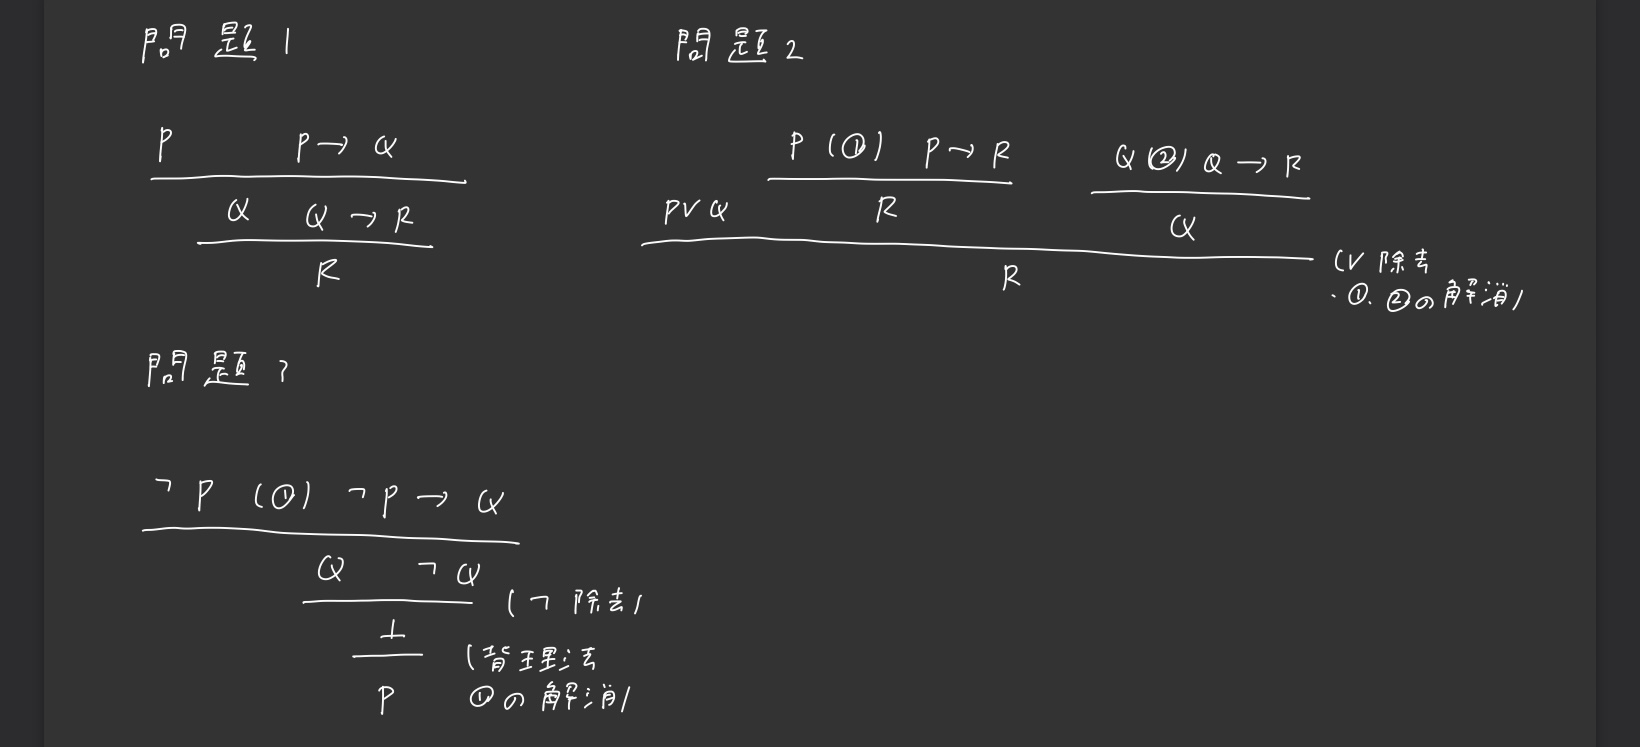 問題1
P P→Q
Q Q→R
R
問題2
P (①) P→R Q (②) Q→R
P∨Q R Q
R (∨除去
・①.②の解消)
問題?
¬P (①) ¬P→Q
Q ¬Q
(¬除去)
⊥
(背理法
P ①の解消)